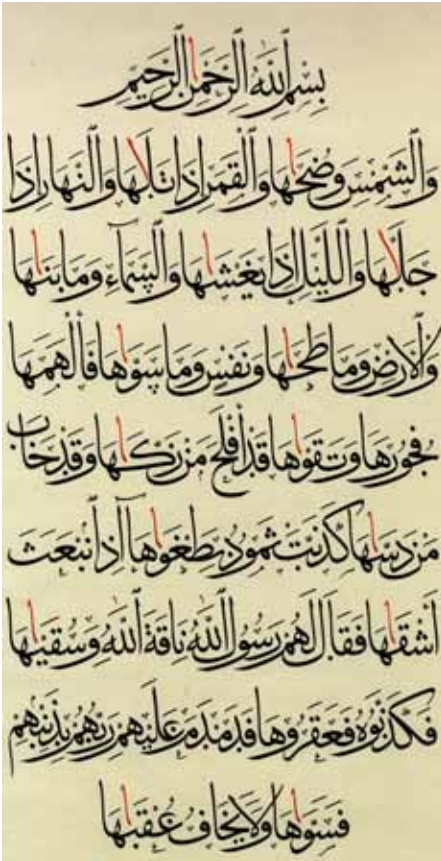 بِسْمِ ٱللَّهِ ٱلرَّحْمَٰنِ ٱلرَّحِيمِ
وَٱلشَّمْسِ وَضُحَىٰهَا وَٱلْقَمَرِ إِذَا تَلَىٰهَا وَٱلنَّهَارِ إِذَا
جَلَّىٰهَا وَٱللَّيْلِ إِذَا يَغْشَىٰهَا وَٱلسَّمَآءِ وَمَا بَنَىٰهَا
وَٱلْأَرْضِ وَمَا طَحَىٰهَا وَنَفْسٍ وَمَا سَوَّىٰهَا فَأَلْهَمَهَا
فُجُورَهَا وَتَقْوَىٰهَا قَدْ أَفْلَحَ مَن زَكَّىٰهَا وَقَدْ خَابَ
مَن دَسَّىٰهَا كَذَّبَتْ ثَمُودُ بِطَغْوَىٰهَآ إِذِ ٱنۢبَعَثَ
أَشْقَىٰهَا فَقَالَ لَهُمْ رَسُولُ ٱللَّهِ نَاقَةَ ٱللَّهِ وَسُقْيَٰهَا
فَكَذَّبُوهُ فَعَقَرُوهَا فَدَمْدَمَ عَلَيْهِمْ رَبُّهُم بِذَنۢبِهِمْ
فَسَوَّىٰهَا وَلَا يَخَافُ عُقْبَٰهَا